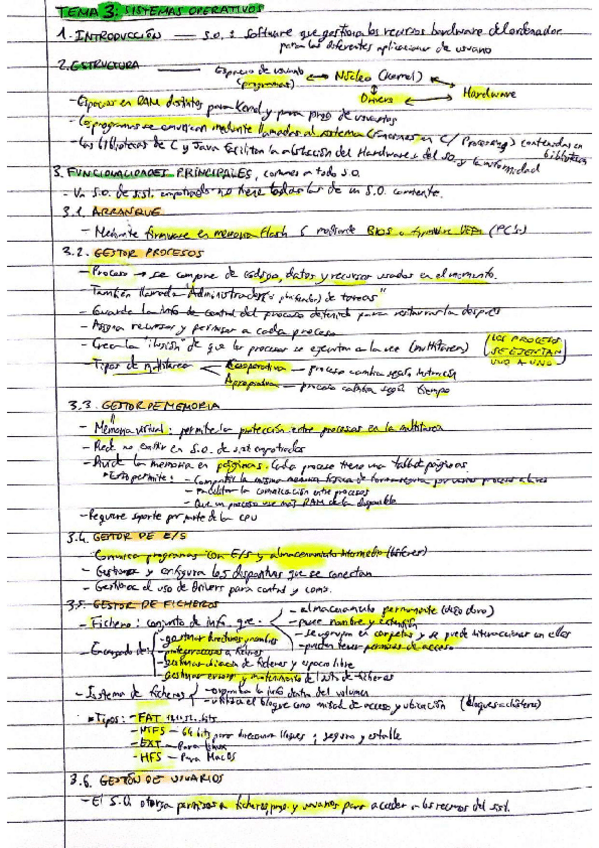 TEMA 3: SISTEMAS OPERATIVOS
1. INTRODUCCIÓN — S.O. : Software que gestiona los recursos hardware del ordenador
para las diferentes aplicaciones de usuario
2. ESTRUCTURA — Espacio de usuario (programas) ↔ Núcleo (Kernel) ↔ Hardware
Drivers
- Espacios en RAM distintos para Kernel y para progs de usuarios
- Los programas se comunican mediante llamadas al sistema (funciones en C / Processing) contenidas en biblioteca
- Las bibliotecas de C y Java facilitan la abstracción del Hardware del SO y la uniformidad
3. FUNCIONALIDADES PRINCIPALES, comunes a todo S.O.
- Un S.O. de sist. empotrado no tiene todas las de un S.O. corriente.
3.1. ARRANQUE
- Mediante firmware en memoria flash ó mediante BIOS o firmware UEFI (PC's)
3.2. GESTOR PROCESOS
- Proceso → se compone de código, datos y recursos usados en el momento.
- También llamado "Administrador de tareas"
- Guarda la info de control del proceso detenido para restaurarla después
- Asigna recursos y permisos a cada proceso
- Crea la "ilusión" de que los procesos se ejecutan a la vez (multitarea) (LOS PROCESOS SE EJECUTAN UNO A UNO)
- Tipos de multitarea < Cooperativa — proceso cambia según
Apropiativa — proceso cambia según tiempo
3.3. GESTOR DE MEMORIA
- Memoria virtual: permite la protección entre procesos en la multitarea
- Puede no existir en S.O. de sist empotrados
- Divide la memoria en páginas. Cada proceso tiene una tabla de páginas.
* Esto permite: - Compartir la misma memoria por varios procesos
- Facilitar la comunicación entre procesos
- Que un proceso use más RAM de la disponible
- Requiere soporte por parte de la CPU
3.4. GESTOR DE E/S
- Comunica programas con E/S y almacenamiento intermedio (búferes)
- Gestiona y configura los dispositivos que se conectan
- Gestiona el uso de drivers para control y
3.5. GESTOR DE FICHEROS
- Fichero: conjunto de info. que: - almacenamiento permanente (disco duro)
- posee nombre y extensión
- se agrupan en carpetas y se puede interaccionar con ellos
- pueden tener permisos de acceso
- Encargado de: - gestionar directorios y nombres
- proteger acceso a ficheros
- gestionar ubicación de ficheros y espacio libre
- gestionar errores y mantenimiento de lista de ficheros
- Sistema de ficheros - organiza la info dentro del volumen
- utiliza el bloque como unidad de acceso y ubicación (bloques = clústeres)
* Tipos: - FAT bits
- NTFS — 64 bits para direccionar bloques; seguro y estable
- EXT — Para Linux
- HFS — Para MacOS
3.6. GESTIÓN DE USUARIOS
- El S.O. otorga permisos a ficheros, progs. y usuarios para acceder a los recursos del sist.